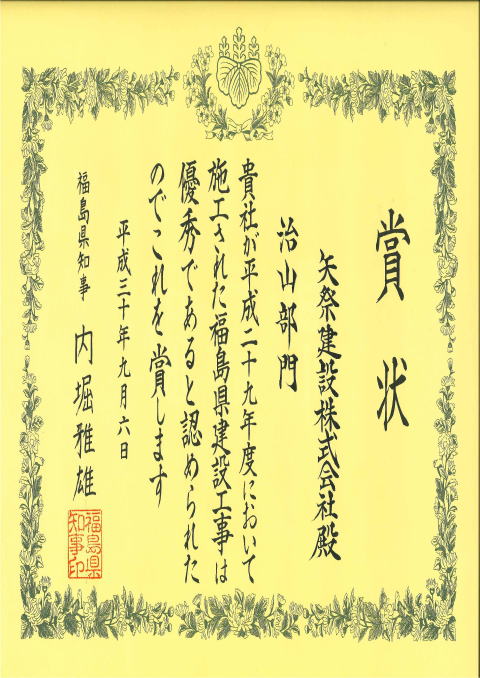 賞状
矢祭建設株式会社殿
治山部門
貴社が平成二十九年度において
施工された福島県建設工事は
優秀であると認められた
のでこれを賞します
平成三十年九月六日
福島県知事 内堀雅雄
福島県
知事印